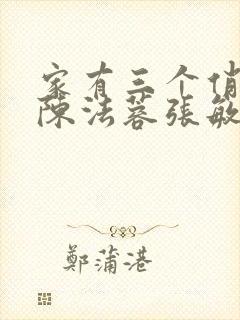 家有三个俏
陈法蓉张敏
鄭蒲港